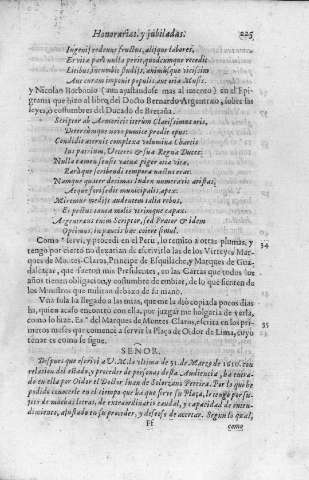 Honorarias, y jubiladas. 225
Ingenij edemus fructus, aliosque labores,
Et vita parvulta peris, quodcumque recedit
Litibus, incumbis studijs, animusque vicissim
Aut curam impendis populis, aut otia Musis.
y Nicolao Borbonio (aun ajustandose mas al intento) en el Epi-
grama que hizo al libro del Docto Bernardo Argentrato, sobre las
leyes, o costumbres del Ducado de Bretaña.
Scriptor ab Armoricis iterum Clarissimus oris,
Deterrumque novo pumice prodit opus:
Condidit aeternis complexa volumina Chartis
Ius patrium, Veteres & sua Regna Duces:
Nulla
Raraque scribendi tempora nactus erat.
Namque quater denimas
Acque
Miremur medijs audentem talia rebus,
Et pectus tanta molis utrimque capax.
Optimus, in paucis haec coiere simul.
Como serví, y procedí en el Perú, lo remito a otras plumas, y 34
tengo por cierto no dexarian de escrivirlo las de los Virreyes Mar-
ques de Montes-Claros, Principe de Esquilache, y Marques de Gua-
dalcaçar, que fueron mis Presidentes, en las Cartas que todos los
años tienen obligacion, y costumbre de embiar, de lo que sienten de
los Ministros que militan debaxo de su mano.
Una sola ha llegado a las mias, que me la dió copiada pocos dias
ha, quien acaso encontró con ella, por juzgar me holgaria de verla,
como lo hize. Es del Marques de Montes-Claros, escrita en los pri- 35
meros meses que comencè a servir la Plaça de Oidor de Lima, cuyo
tenor es como se sigue.
SEÑOR.
Despues que escriví a V.M. la ultima de 31. de Março de 1610. con
relacion del estado, y proceder de personas desta Audiencia, ha entra-
do en ella por Oidor el Doctor Iuan de Solorzano Pereira. Por lo que he
podido conocerle en el tiempo que ha que sirve su Plaça, le tengo por su-
geto de muchas letras, de extraordinario caudal, y capacidad de enten-
dimiento, ajustado en su proceder, y deseoso de acertar. Segun lo qual,
Ff como